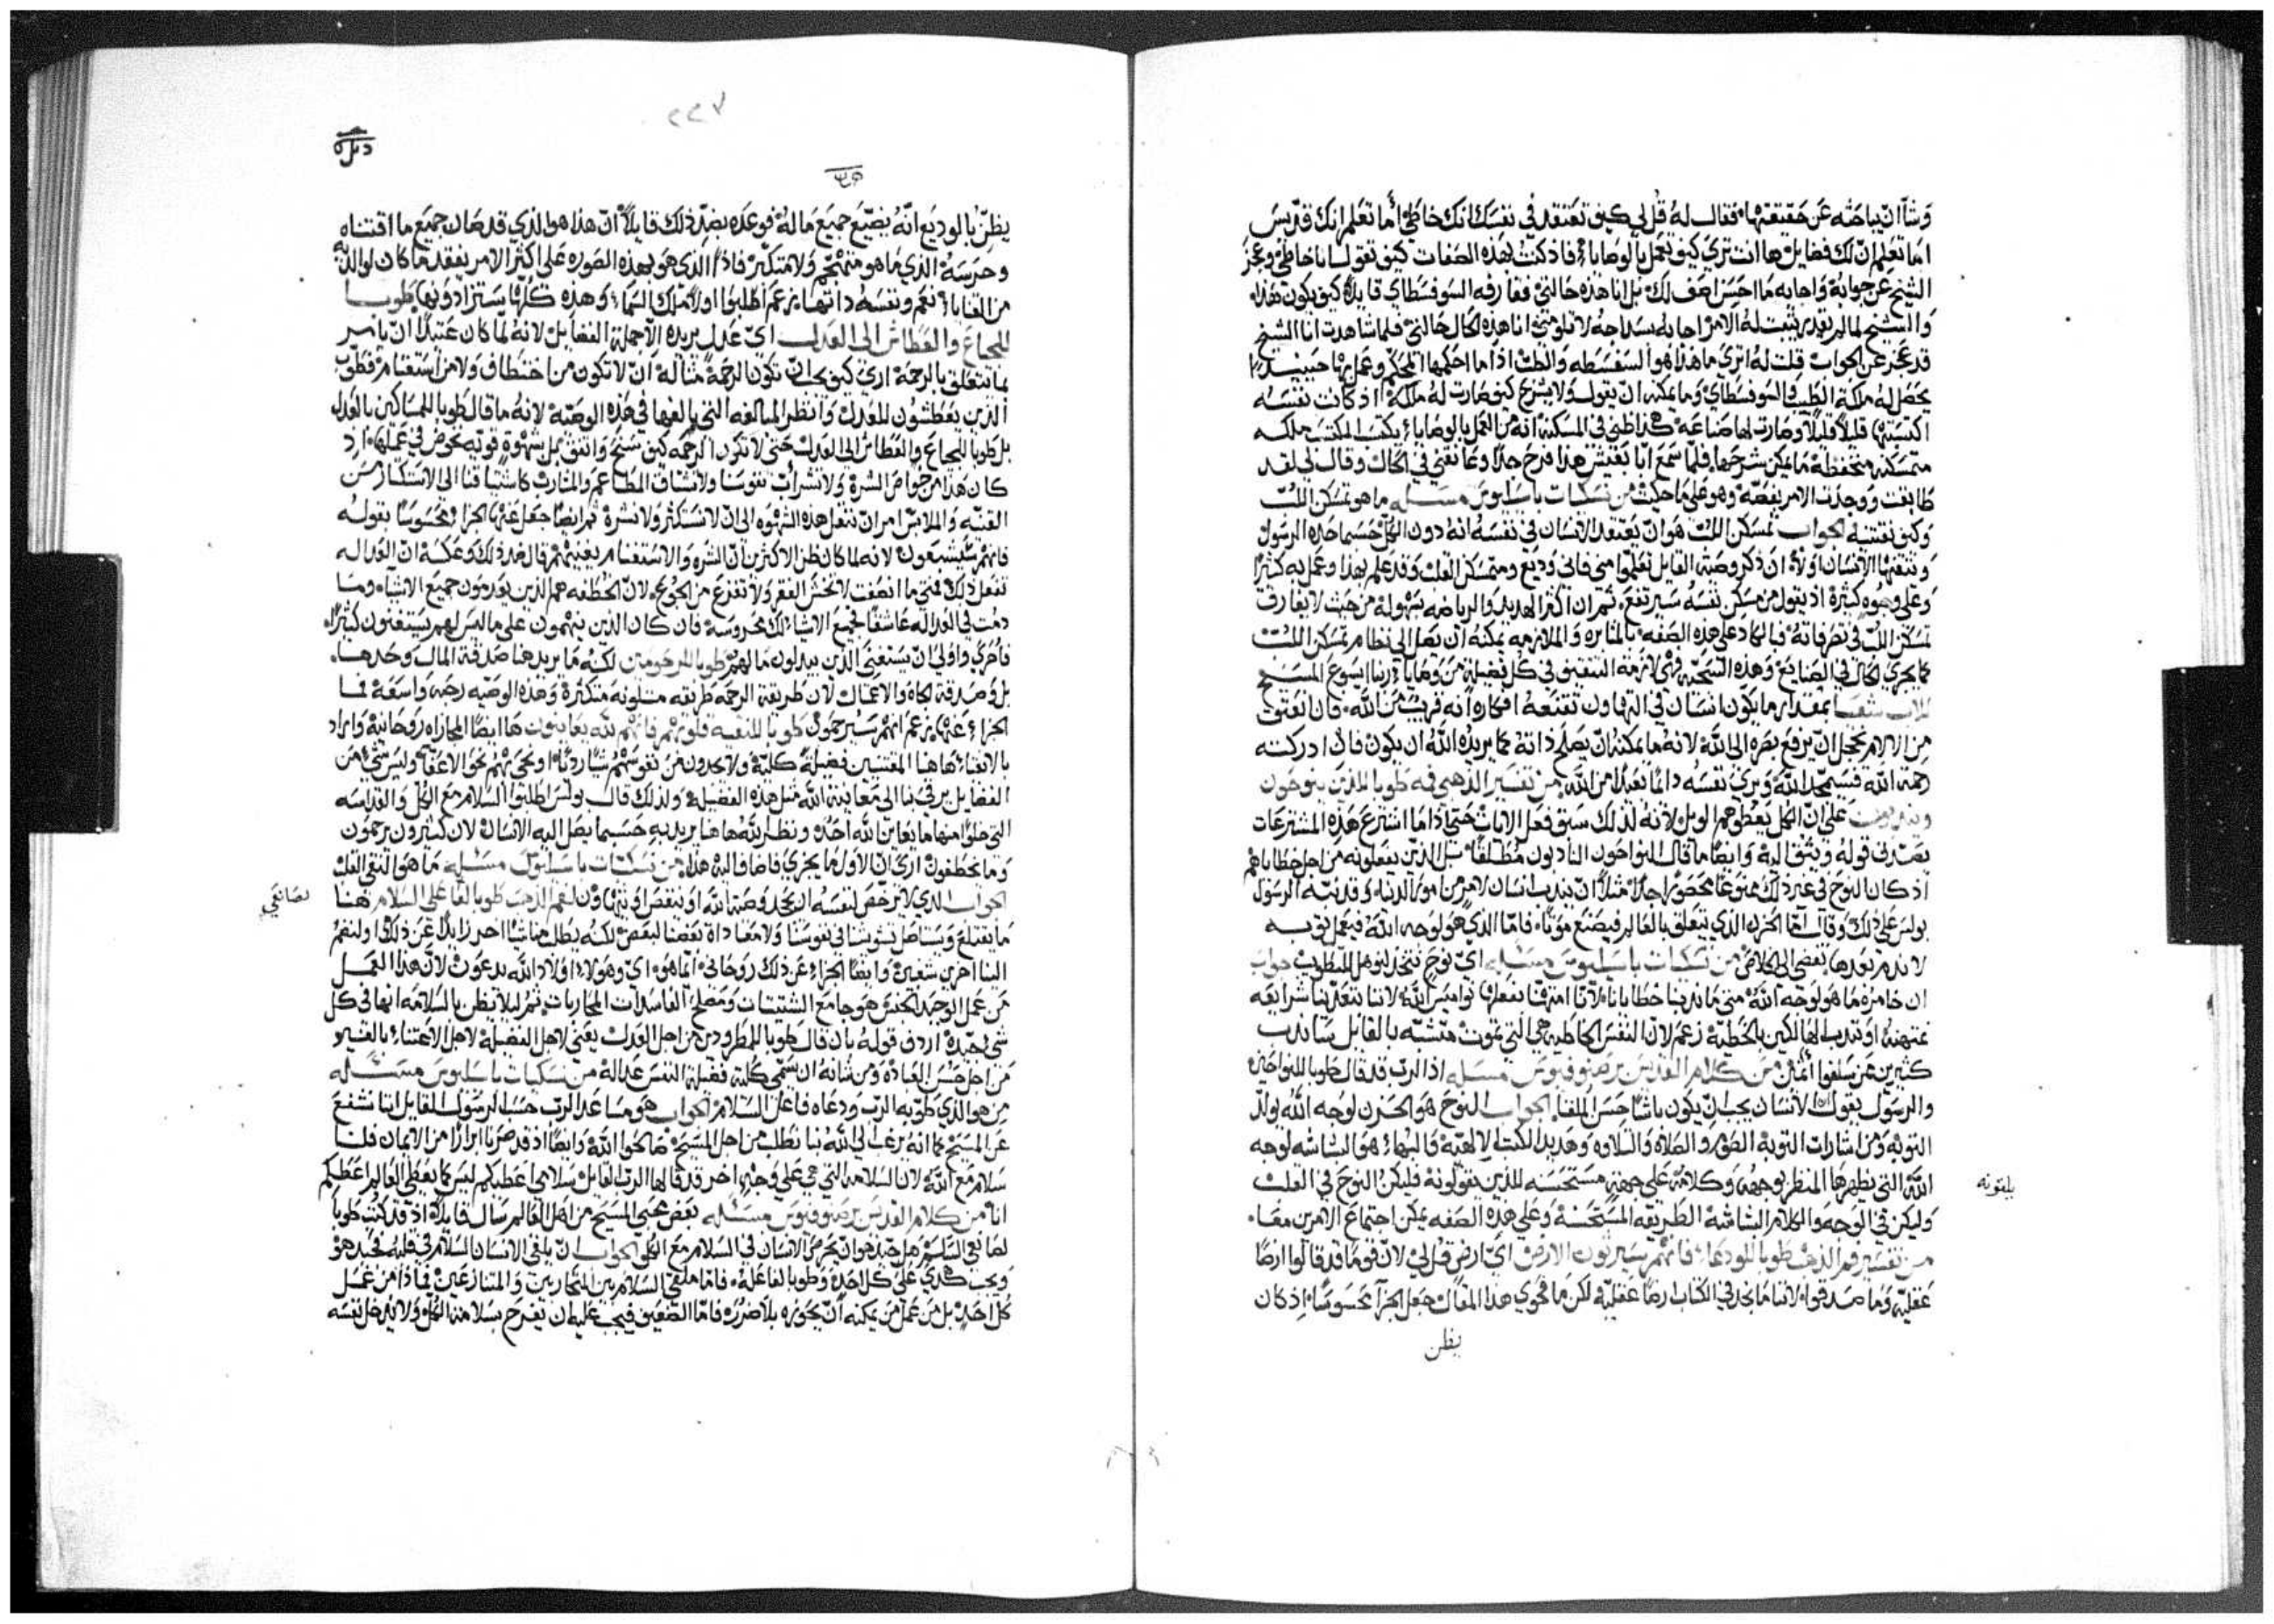 وشاا ان يباحثه عن حقيقتها. فقال له قُل لي كيف تعتقد في نفسك انك خاطئ أما تعلم انك قديس
اما تعلم ان لك فضايل ها انت تري كيف تعمل بالوصايا فاذ كنت بهذه الصفات كيف تقول انا خاطئ وعجز
الشيخ عن جوابه واجابه ما احسن اصف لك بل انا هذه حالتي فعارفه السوفسطاي قايلاً كيف يكون هذا
والشيخ لما لم يقدر يثبت له الامر اجابه بسداجه لا تلومني انا هذه الحال حالتي فلما شاهدت انا الشيخ
قد عجز عن الجواب قلت له اتري ما هذا هو السفسطه والطب اذا ما احكمها المحكم وعمل بها حينيذ
يحصل له ملكة الطب والسوفسطاي وما يمكنه ان يقول ولا يشرح كيف صارت له ملكة اذ كانت نفسه
اكتسبتها قليلاً قليلاً وصارت لها صناعه هكذا ظني في المسكنه انه من العمل بالوصايا يكتسب المكتسب ملكه
متمسكنه متحفظه ما يمكن شرحها فلما سمع انبا هذا فرح جدا وعانقني في الحال وقال لي لقد
طابقت ووجدت الامر بفصه وهو على ما حكيت من نسكيات باسيليوس مسئله ما هو تمسكن اللب
وكيف نقتنيه الجواب تمسكن اللب هو ان يعتقد الانسان في نفسه انه دون الكل حسبما حده الرسول
ويقتنيها الانسان اولاً ان ذكر وصية القايل تعلموا مني فاني وديع ومتمسكن القلب وقد علم بهذا وعمل به كثيرًا
وعلى وجوه كثيرة اذ يقول من مسكن نفسه سيرتفع. ثم ان اكثر الهديد والرياضه بسهولة من حيث لا يفارق
تمسكن اللب في تصرفاته فبالكاد على هذه الصفه بالمثابره والملازمه يمكنه ان يصل الى نظام تمسكن اللب
كما يجري الحال في الصنايع وهذه السجيه هي لازمة التنفيق في كل فضيله من وصايا ربنا ايسوع المسيح
للاب شعيا بمقدار ما يكون انسان في التهاون تقنعه افكاره انه قريب من الله. فان انعتق
من الالام يخجل ان يرفع بصره الى الله لانه ما يمكنه ان يصلح ذاته كما يريده الله ان يكون فان ادركته
رحمة الله فسيمجد الله ويري نفسه دايما بعيدا من الله من تفسير الذهبي فمه طوبا للذين ينوحون
على ان الكل يعطوهم الويل لانه لذلك سبق فعل الايات حتى اذا ما اشترع هذه المشترعات
يصدق قوله ويثق اليه وايضًا ما قال النواحون النادبون مطلقًا بل الذين يفعلونه من اجل خطاياهم
اذ كان النوح في غير ذلك ممنوعًا محصورًا جدًا مثلاً ان يندب انسان لامر من امور الدنيا وقد نبه الرسول
بولس على ذلك وقال أما الحزن الذي يتعلق بالعالم فيصنع موتًا. فاما الذي هو لوجه الله فيعمل توبه
لا ندم بعدها يفضي الى الخلاص من نسكيات باسيليوس مسئله اي نوح نتخذ لنوهل للتطويب جواب
ان خامره ما هو لوجه الله متى ما ندبنا خطايانا لاننا امتهنا بفعلها نواميس الله لاننا نتعدينا شرايعه
ممتهنه او نندب الهالكين بالخطيه زعم لان النفس الخاطيه هي التي تموت متشبه بالقايل ساندب
كثيرين من سلفوا أثمين من كلام القديس برصنوفيوس مسئله اذ الرب قد قال طوبا للنواحين
والرسول يقول ان الانسان يجب ان يكون باشًا حسن الملقا الجواب النوح هو الحزن لوجه الله يولد
التوبه ومن اشارات التوبه الصوم والصلاه والتلاوه وهديد الكتب الالهيه فالبهاء هو البشاشه لوجه
الله التي يظهرها المنظر بوجهه وكلامه على جهة مستحسنه للذين يقولونه فليكن النوح في القلب
وليكن في الوجه والكلام البشاشة الطريقه المستحسنة وعلى هذه الصفه يمكن اجتماع الامرين معًا.
من تفسير فم الذهب طوبا للودعا فانهم سيرثون الارض اي ارض قُل لي لان قومًا قد قالوا ارضًا
عقلية وما صدقوا لاننا ما نجد في الكتاب ارضًا عقليه لكن ما فحوي هذا المقال جعل الجزآ محسوسًا اذ كان
يظن
يلقونه
٢٢٧
يظن بالوديع انه يضيّع جميع ماله فوعده بضد ذلك قايلاً ان هذا هو الذي قد صان جميع ما اقتناه
وحرسه الذي ما هو متهجم ولا متكبر فاذًا الذي هو بهذه الصوره على اكثر الامر يفقد ما كان لوالديه
من القنايا نعم ونفسه ذاتها. زعم اطلبوا اولاً ملك السما وهذه كلها ستزادونها طوبا
للجياع والعطاش الى العدل اي عدل يريده الا جملة الفضايل لانه لما كان عتيدًا ان يامر
بما يتعلق بالرحمة اري كيف يجب ان تكون الرحمة مثاله ان لا تكون من اختطاف ولا من استغنام فطوّب
الذين يعطشون للعدل وانظر المبالغه التي بالغها في هذه الوصيه لانه ما قال طوبا للمساكين بالعدل
بل طوبا للجياع والعطاش الى العدل حتى لا تكون الرحمه كيف سنح واتفق بل بشهوة قويه نخوض في عملها. اذ
كان هذا من خواص الشره ولا تشرأب نفوسنا ولا تشتاق المطاعم والمشارب كاشتياقنا الى الاستكثار من
القنيه والملابس امر ان ننقل هذه الشهوه الى ان لا نستكثر ولا نشره ثم ايضًا جعل عنها الجزا محسوسًا بقوله
فانهم سيشبعون لانه لما كان ظن الاكثرين ان الشره والاستغنام يغنيهم قال ضد ذلك وعكسه ان العداله
تفعل ذلك فمتى ما انصفت لا تخش الفقر ولا تفزع من الجوع. لان الخطفه هم الذين يعدمون جميع الاشياء وما
دمت في العداله عاشقًا فجميع الاشياء لك محروسة فان كان الذين ينهمون على ما ليس لهم يستغنون كثيرًا.
فاحري واولي ان يستغني الذين يبذلون ما لهم طوبا للمرحومين لكنه ما يريد هنا صدقة المال وحدها.
بل وصدقة الجاه والاعمال لان طريقة الرحمه طريقه متلونه متكثرة وهذه الوصيه رحبه واسعة فما
الجزاء عنها زعم انهم سيرحمون طوبا للنقيه قلوبهم فانهم لله يعاينون ها ايضًا المجازاه روحانيه واراد
بالانقيا هاهنا المقتنين فضيلة كليّة ولا يجدون من نفوسهم شيًا رديًا او نحي بهم نحو الاعفا وليس شيء من
الفضايل يرقي بنا الى معاينة الله مثل هذه الفضيله ولذلك قال بولس اطلبوا السلام مع الكل والقداسه
التي خلوًا منها ما يعاين الله احد ونظر الله هاهنا يريد به حسبما يصل اليه الانسان لان كثيرون يرحمون
وما يخطفون اري ان الاول ما يجزي فاضاف اليه هذا. من نسكيات باسيليوس مسئله ما هو النقي القلب
الجواب الذي لا يرخص لنفسه ان يجحد وصية الله او ينقص او يتهاون لفم الذهب طوبا لفاعلي السلام هنا
ما يقتلع ويستاصل تشوشنا في نفوسنا ولا معاداة بعضنا لبعض لكنه يطلب منا شيًا اخر زايدًا عن ذلك ولنضم
الينا اخرين شعبين وايضًا الجزاء عن ذلك روحاني. ايما هو اي وهولا اولاد الله يدعون لان هذا العمل
من عمل الوحيد الجنس هو جامع الشتيتات ومصلح الفاسدات المحاربات. ثم ليلا يظن بالسلامه انها في كل
شي جيدة اردف قوله بان قال طوبا للمطرودين من اجل العدل يعني لاهل الفضيلة لاجل الاعتناء بالغير
من اجل حسن العبادة ومن شانه ان يسمي كلية فضيلة النفس عداله من نسكيات باسيليوس مسئله
من هو الذي طوّبه الرب ودعاه فاعل السلام الجواب هو مساعد الرب حسب الرسول القايل اننا نشفع
عن المسيح كما انه يرغب الى الله بنا نطلب من اجل المسيح صالحوا الله وايضًا اذ قد صرنا ابرارًا من الايمان فلنا
سلام مع الله لان السلامه التي هي على وجهٍ اخر قد قالها الرب القايل سلامي اعطيكم ليس كما يعطي العالم اعطيكم
انا من كلام القديس برصنوفيوس مسئله بعض محبي المسيح من اهل العالم سال قايلاً اذ قد كتب طوبا
لصانعي السلام هل جيد هو ان يحرص الانسان في السلام مع الكل الجواب ان يلقي الانسان السلام في قلبه فجيد هو
ويجب هكذي على كل احد وطوبا لفاعله. فاما ملقي السلام بين المتحاربين والمتنازعين فما ذا من عمل
كل احد بل من عمل من يمكنه ان يحوزه بلا ضرر. فاما الضعيف فيجب عليه ان يفرح بسلامة الكل ولا يدخل نفسه
لصانعي